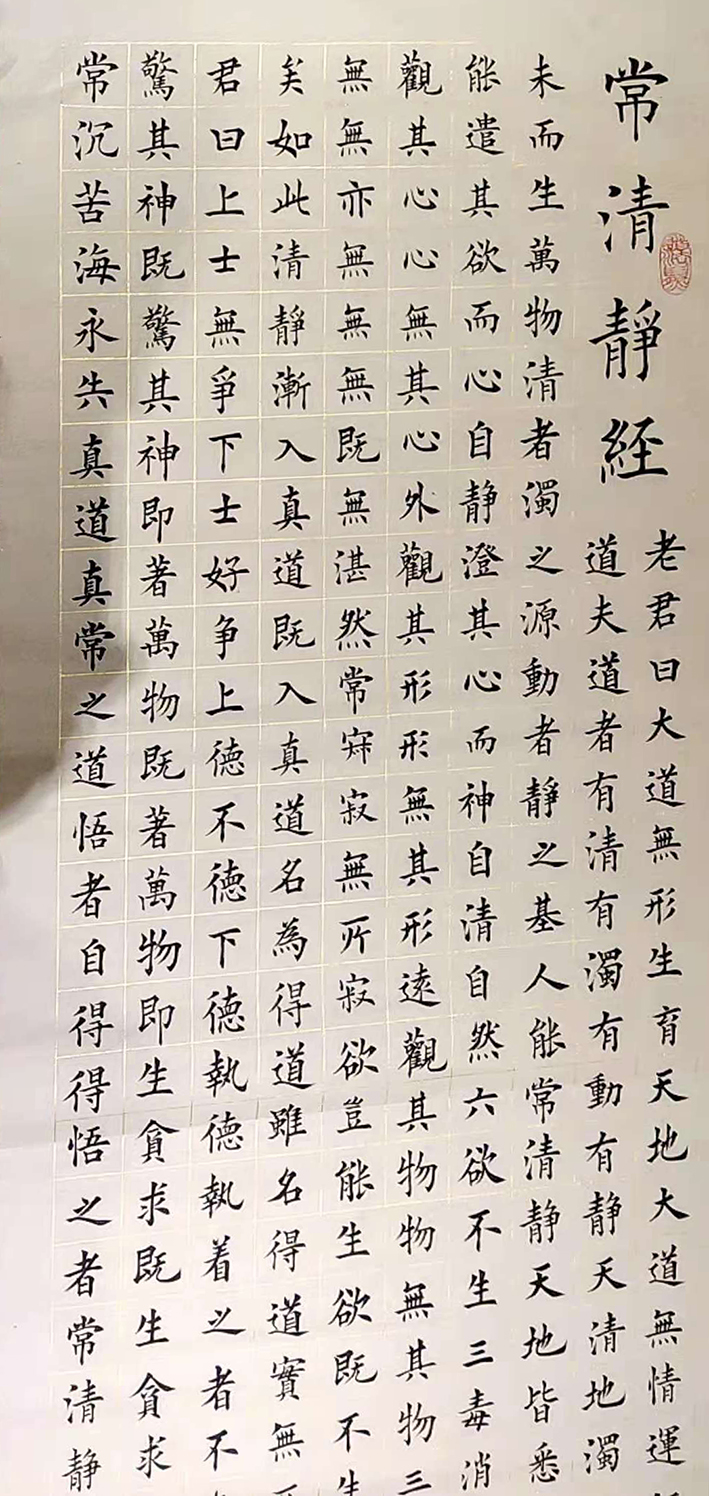 常清靜經
老君曰大道無形生育天地大道無情運
道夫道者有清有濁有動有静天清地濁
未而生萬物清者濁之源動者靜之基人能常清静天地皆悉
能遣其欲而心自静澄其心而神自清自然六欲不生三毒消
觀其心心無其心外觀其形形無其形遠觀其物物無其物三
無無亦無無無既無湛然常寂寂無所寂欲豈能生欲既不生
矣如此清靜漸入真道既入真道名為得道雖名得道實無
君曰上士無爭下士好争上德不德下德執德執着之者不
驚其神既驚其神即著萬物既著萬物即生貪求既生貪求
常沉苦海永失真道真常之道悟者自得得悟之者常清静